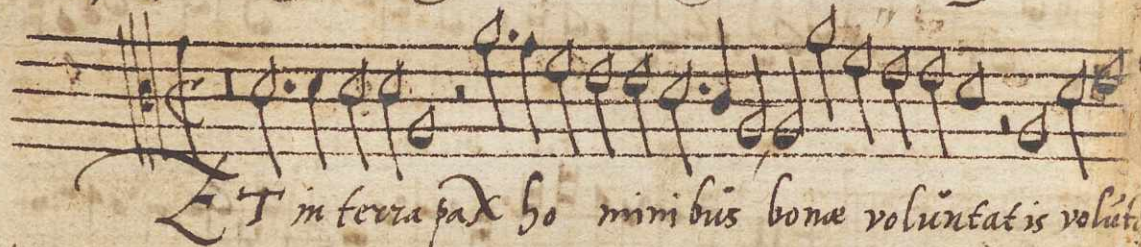 ET in terra pax ho mini bus bonæ voluntatis volut